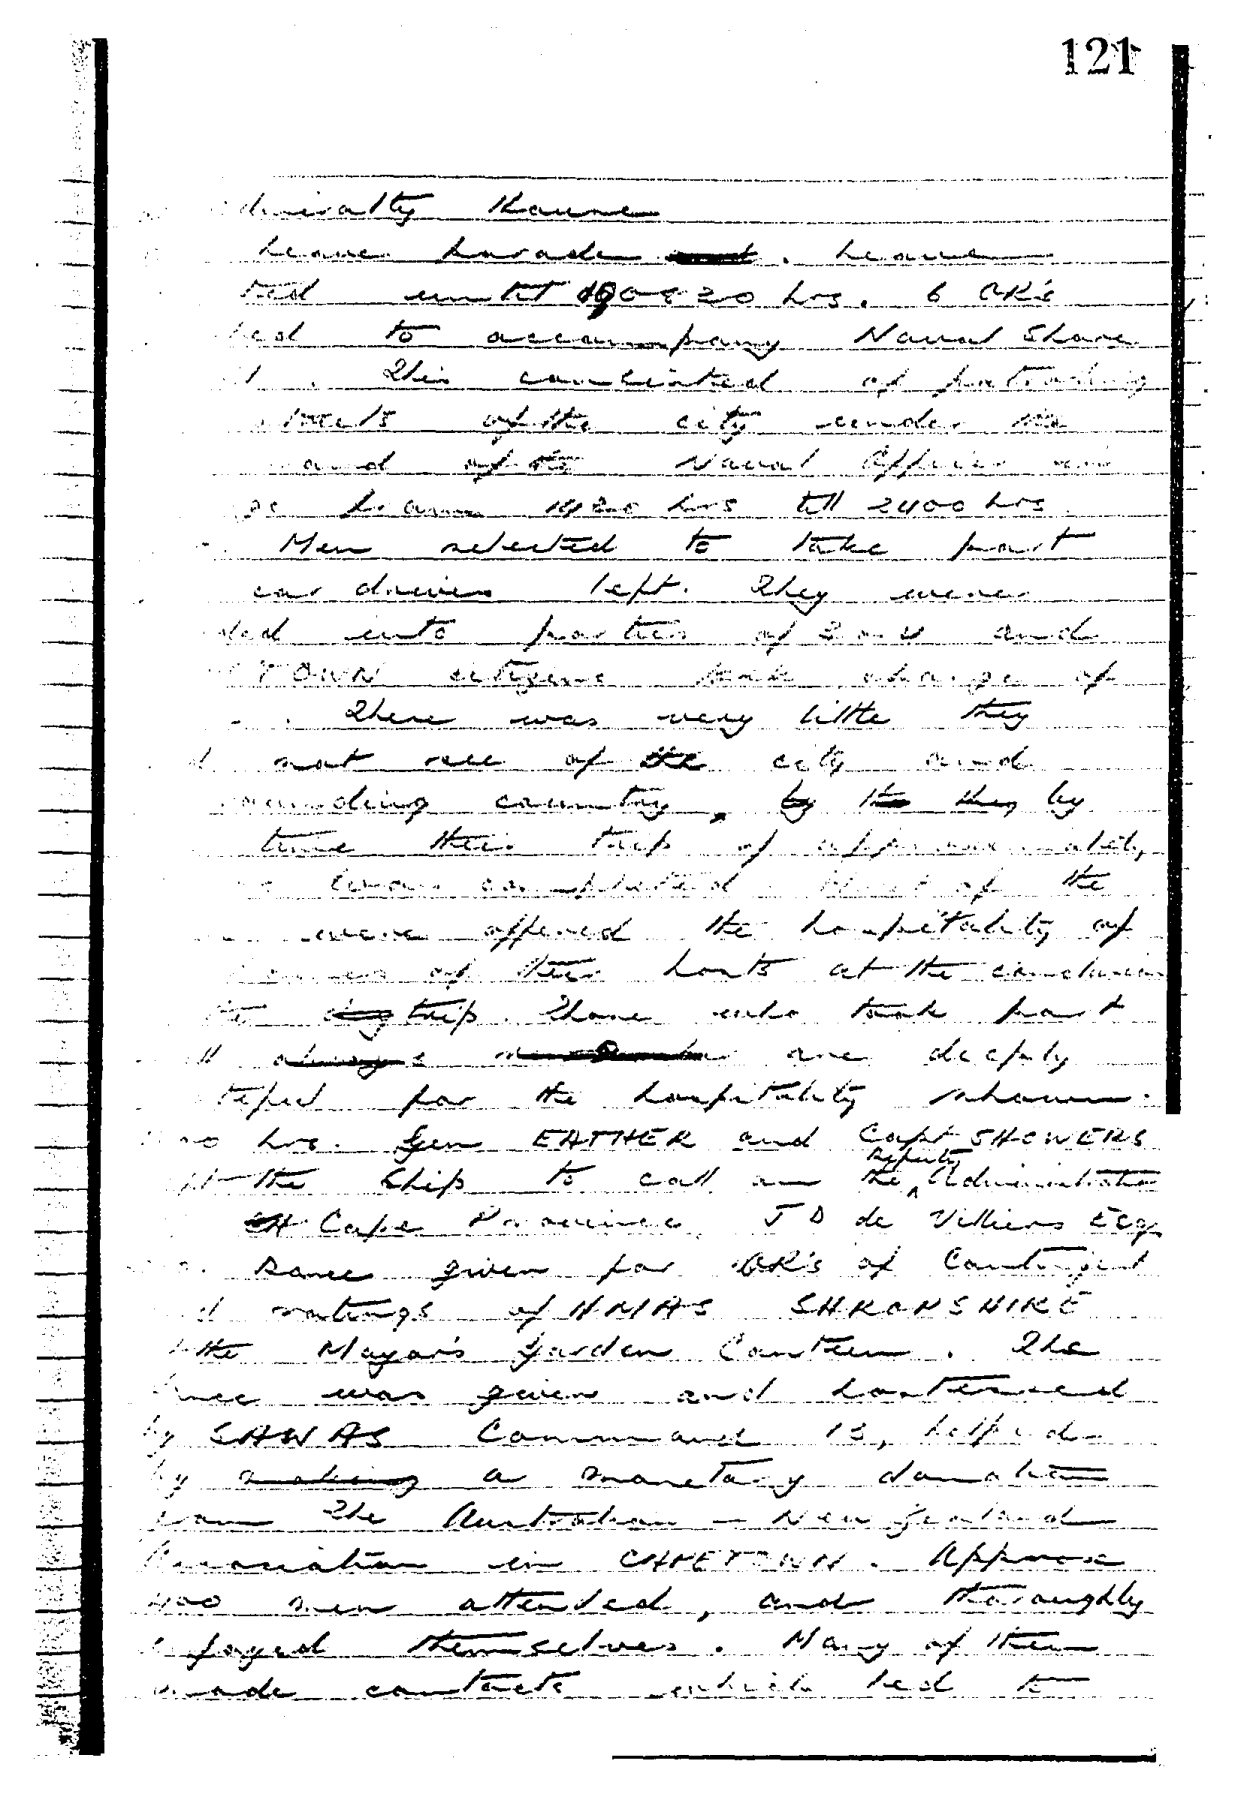 121
dmiralty House
Leave parade. Leave
ted until 090820 hrs. 6 OR's
ed to accompany Naval Shore
. This consisted of patrolling
streets of the city under the
mand of the Naval Officer
from 1930 hrs till 2400 hrs.
Men selected to take part
car drives left. They were
ded into parties of 3 or 4 and
TOWN citizens took charge of
. There was very little they
d not see of the city and
rounding country, by the they by
time their trip of approximately
was completed. Most of the
were offered the hospitality of
homes of their hosts at the conclusion
the day trip. Those who took part
ll always are deeply
teful for the hospitality shown.
hrs. Gen EATHER and Capt SHOWERS
ft the Ship to call on the Deputy Administrator
Cape Province J D de Villiers Esq.
Dance given for OR's of Contingent
d ratings of HMAS SHROPSHIRE
the Mayor's Garden Canteen. The
nce was given and hostessed
by SAWAS Command 13, helped
by making a monetary donation
from The Australian - New Zealand
Association in CAPETOWN. Approx
400 men attended, and thoroughly
enjoyed themselves. Many of them
made contacts which led to